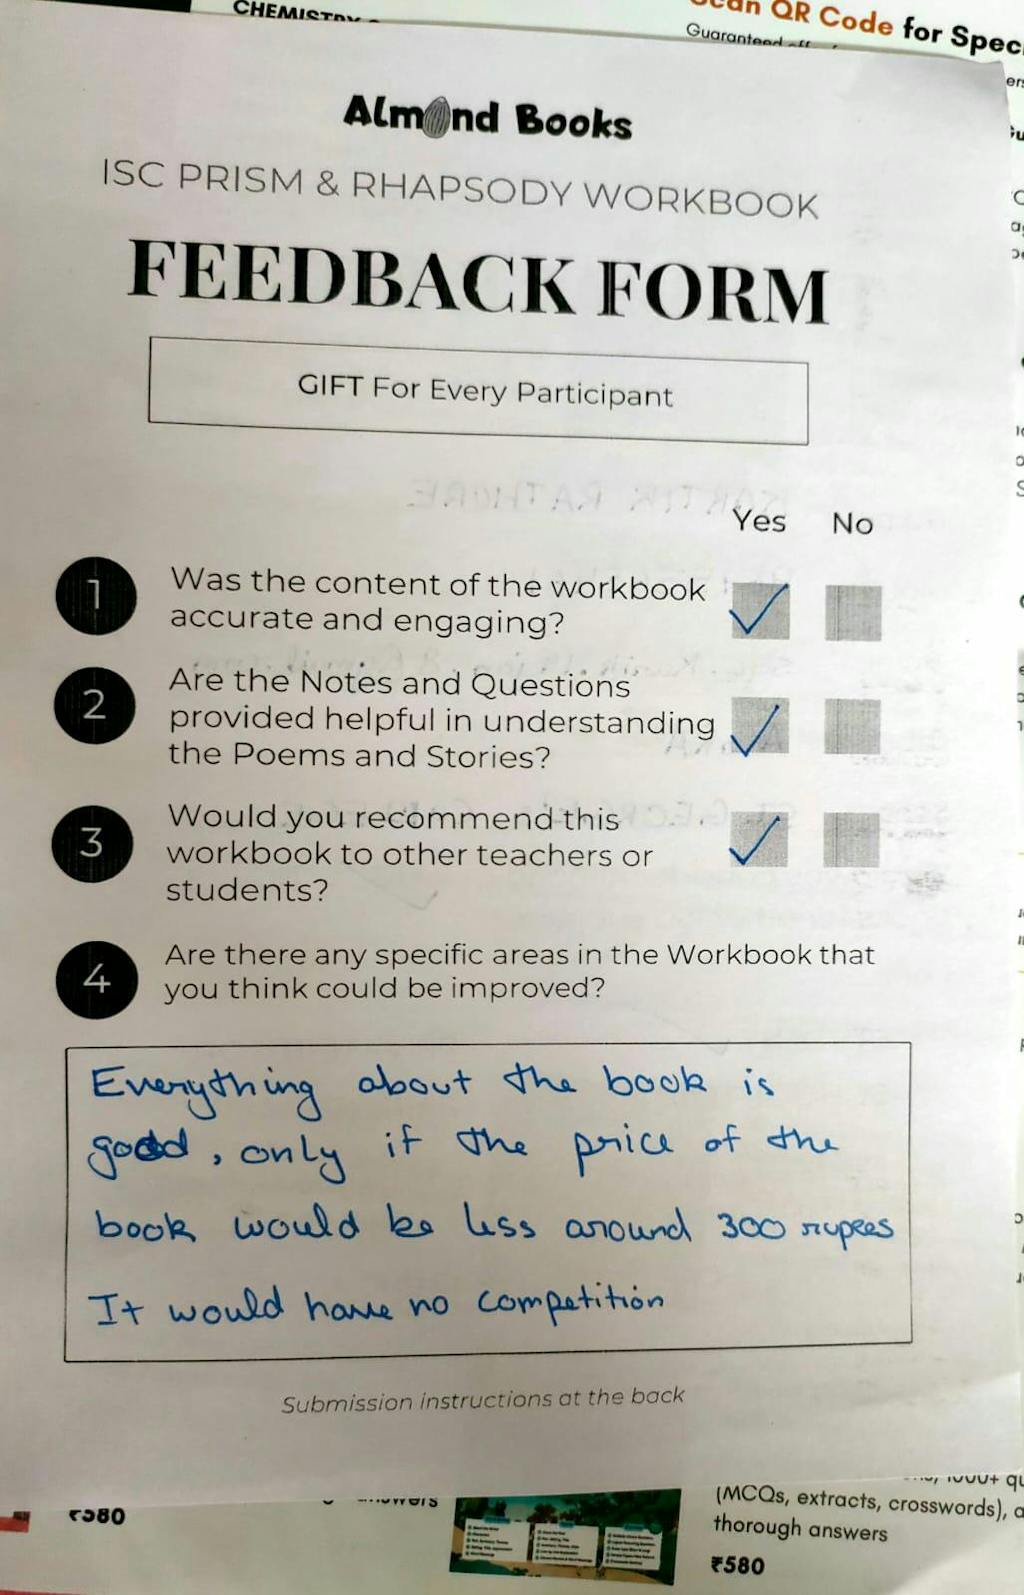 CHEMISTRY
Scan QR Code for Spec
Guaranteed off
Almond Books
ISC PRISM & RHAPSODY WORKBOOK
FEEDBACK FORM
GIFT For Every Participant
Yes No
1 Was the content of the workbook
accurate and engaging?
2 Are the Notes and Questions
provided helpful in understanding
the Poems and Stories?
3 Would you recommend this
workbook to other teachers or
students?
4 Are there any specific areas in the Workbook that
you think could be improved?
Everything about the book is
good, only if the price of the
book would be less around 300 rupees
It would have no competition
Submission instructions at the back
1000+ qu
(MCQs, extracts, crosswords), a
thorough answers
₹580
answers
₹580